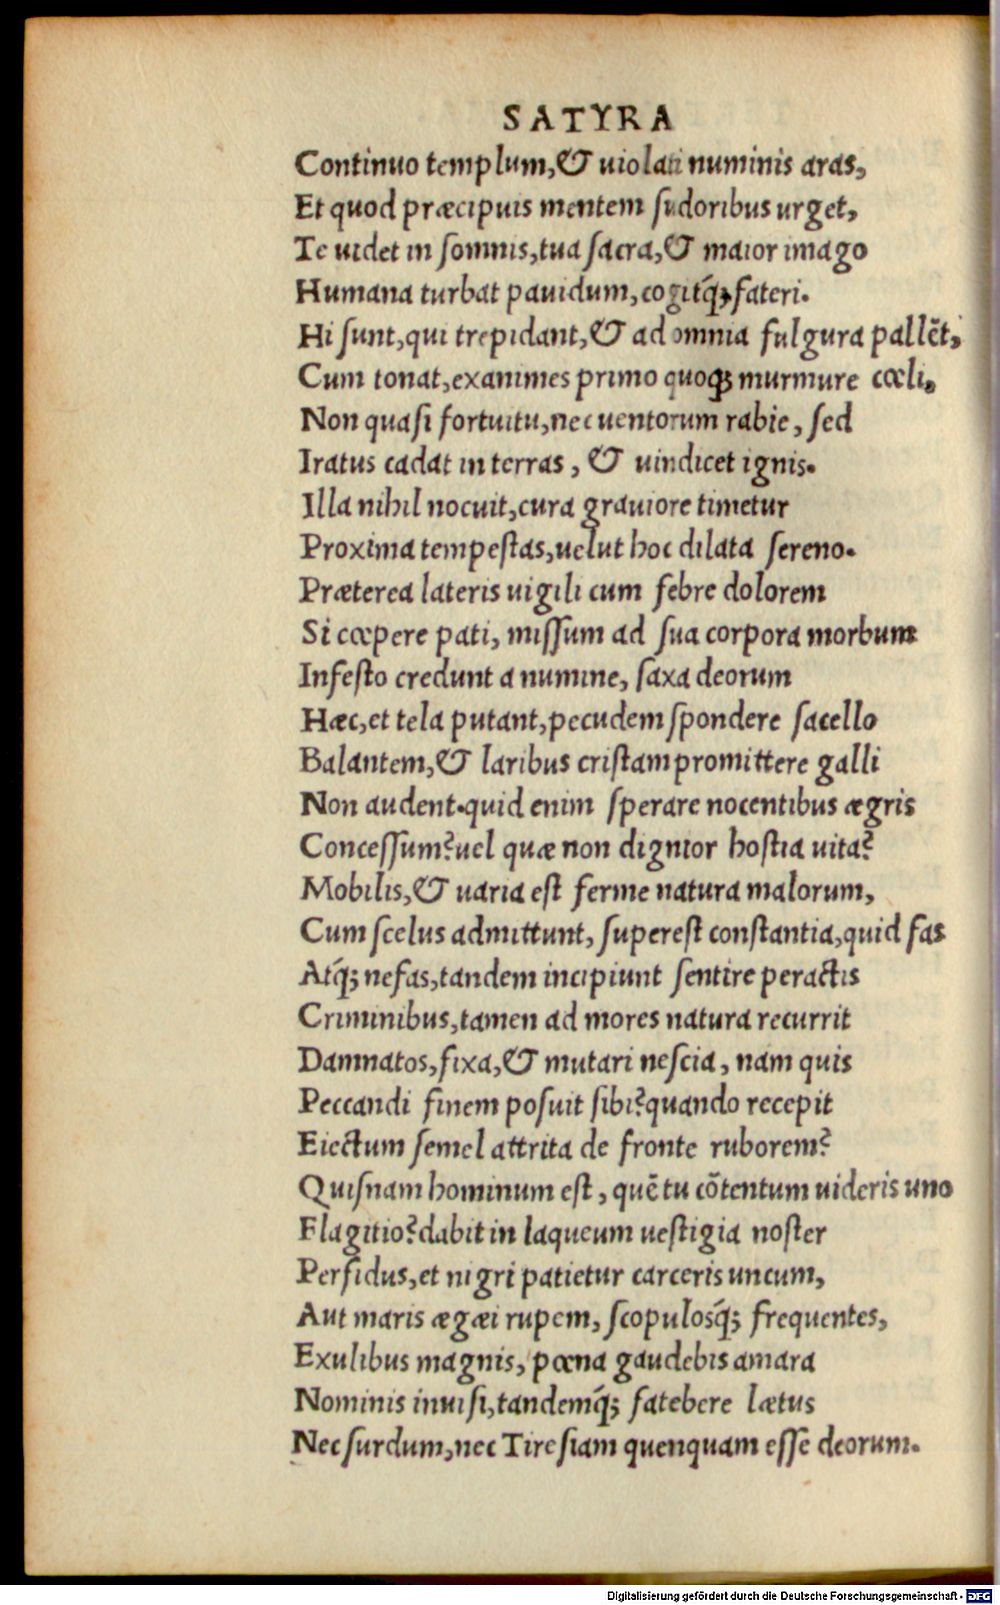 SATYRA
Continuo templum,& uiolati numinis aras,
Et quod præcipuis mentem sudoribus urget,
Te uidet in somnis,tua sacra,& maior imago
Humana turbat pauidum,cogitq́;fateri.
Hi sunt,qui trepidant,& ad omnia fulgura pallēt,
Cum tonat,exanimes primo quoq; murmure cœli.
Non quasi fortuitu,nec uentorum rabie, sed
Iratus cadat in terras, & uindicet ignis.
Illa nihil nocuit,cura grauiore timetur
Proxima tempestas,uelut hoc dilata sereno.
Præterea lateris uigili cum febre dolorem
Si cœpere pati, missum ad sua corpora morbum
Infesto credunt a numine, saxa deorum
Hæc,et tela putant,pecudem spondere sacello
Balantem,& laribus cristam promittere galli
Non audent.quid enim sperare nocentibus ægris
Concessum?uel quæ non dignior hostia uita?
Mobilis,& uaria est ferme natura malorum,
Cum scelus admittunt, superest constantia,quid fas
Atq́; nefas,tandem incipiunt sentire peractis
Criminibus,tamen ad mores natura recurrit
Damnatos,fixa,& mutari nescia, nam quis
Peccandi finem posuit sibi?quando recepit
Eiectum semel attrita de fronte ruborem?
Quisnam hominum est, quē tu cōtentum uideris uno
Flagitio?dabit in laqueum uestigia noster
Perfidus,et nigri patietur carceris uncum,
Aut maris ægæi rupem, scopulosq́; frequentes,
Exulibus magnis, pœna gaudebis amara
Nominis inuisi,tandemq́; fatebere lætus
Nec surdum,nec Tiresiam quenquam esse deorum.
Digitalisierung gefördert durch die Deutsche Forschungsgemeinschaft - DFG